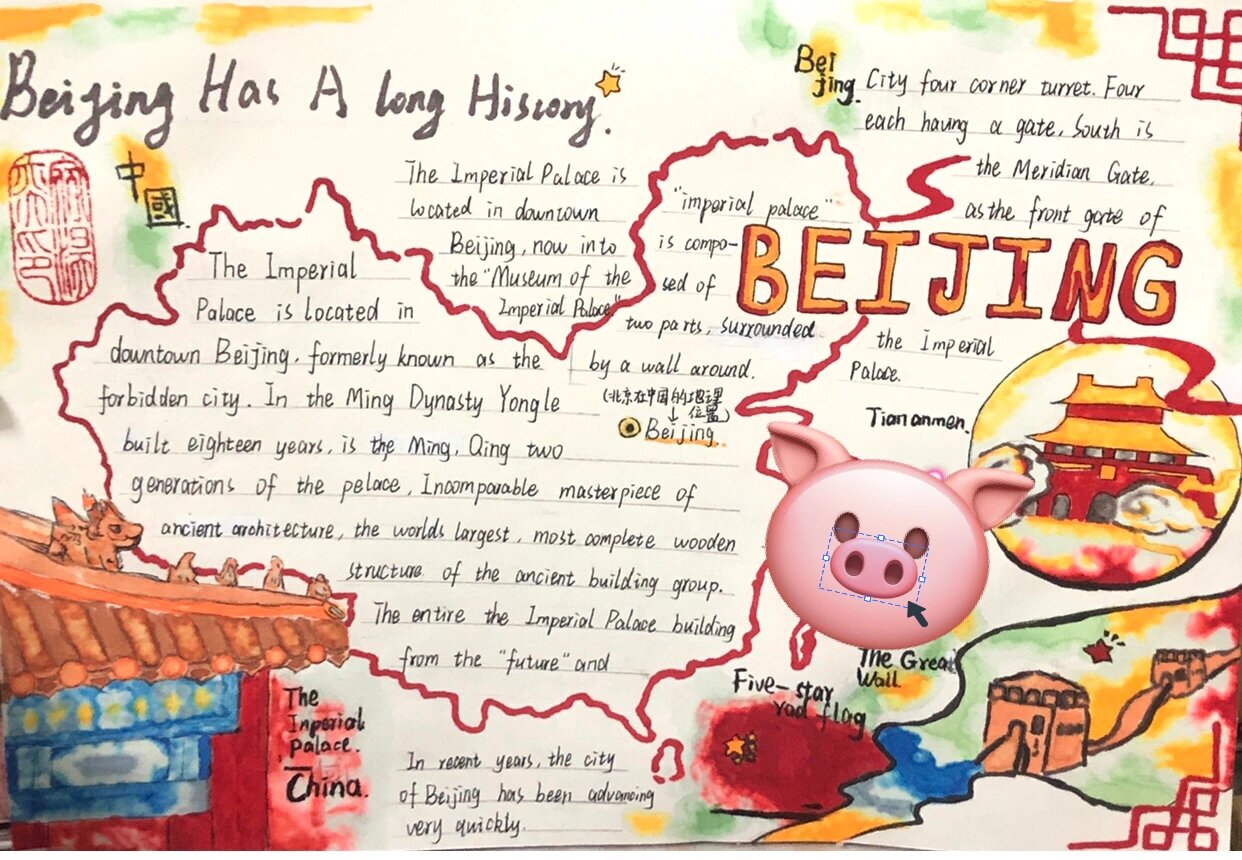 Beijing Has A long History.
中
國
The Imperial
Palace is located in
downtown Beijing, formerly known as the
forbidden city. In the Ming Dynasty Yongle
built eighteen years, is the Ming, Qing two
generations of the pelace, Incomparable masterpiece of
ancient architecture, the worlds largest, most complete wooden
structure of the ancient building group.
The entire the Imperial Palace building
from the "future" and
The Imperial Palace is
located in downtown
Beijing, now into
the "Museum of the
Imperial Palace"
"imperial palace"
is compo-
sed of
two parts, surrounded
by a wall around.
(北京在中国的地理
↓ 位置)
Beijing
Bei
jing.
City four corner turret. Four
each having a gate, South is
the Meridian Gate,
as the front gate of
BEIJING
the Imperial
Palace.
Tian anmen.
The Great
Wall.
Five-star
rad flag
The
Inperial
palace.
China.
In recent years, the city
of Beijing has been advancing
very quickly.